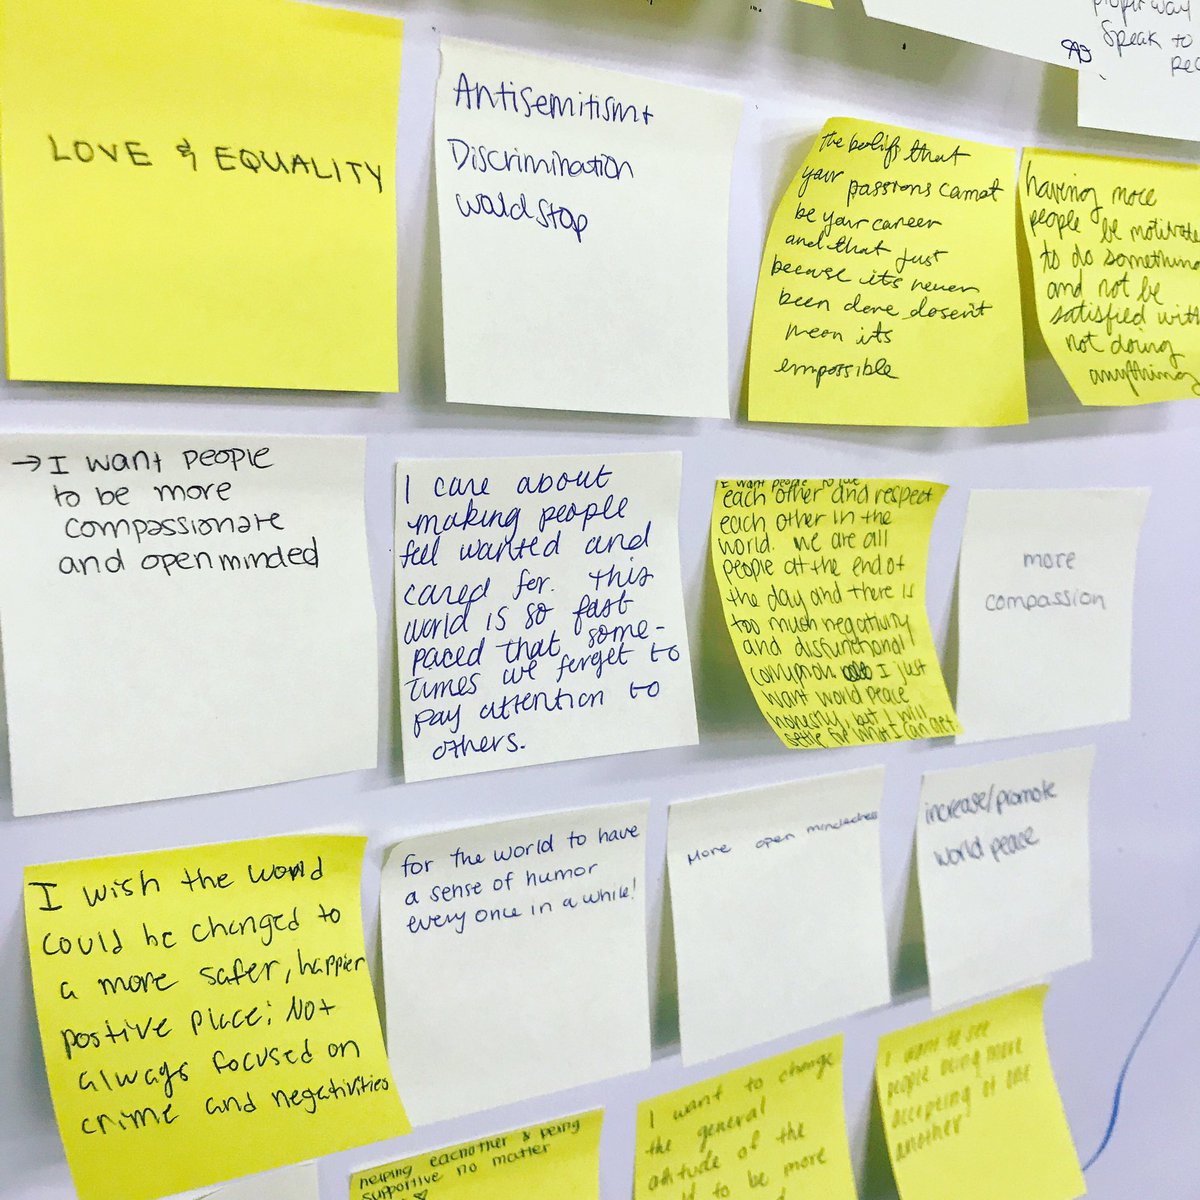 proper way
speak to
LOVE & EQUALITY
Antisemitism +
Discrimination
would stop
the beliefs that
your passions cannot
be your career
and that just
because its never
been done dosen't
mean its
empossible
having more
people be motivate
to do something
and not be
satisfied with
not doing
anything
→ I want people
to be more
compassionate
and open minded
I care about
making people
feel wanted and
cared for. this
world is so fast
paced that some-
times we forget to
pay attention to
others.
I want people to
each other and respect
each other in the
world. We are all
people at the end of
the day and there is
too much negativity
and disfunctional
corruption I just
want world peace
honestly, but I will
settle for what I can get.
more
compassion
I wish the world
could be changed to
a more safer, happier
postive place; Not
always focused on
crime and negativities
for the world to have
a sense of humor
every once in a while!
More open mindedness
increase/promote
world peace
helping eachother & being
supportive no matter
I want to change
the general
attitude of the
to be more
I want to see
people being more
accepting of one
another